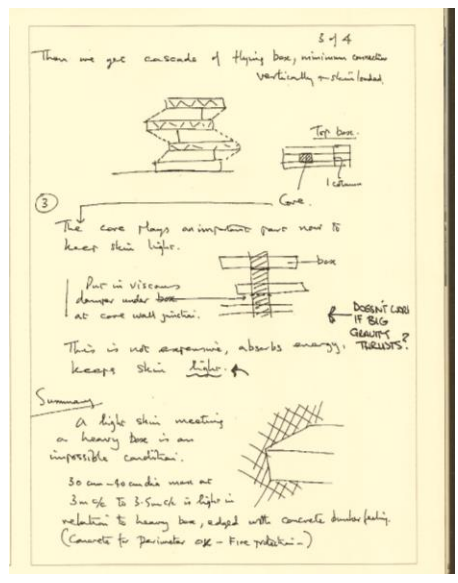 3 of 4
Then we get cascade of flying box, minimum connection
vertically skin loaded.
Top box.
1 column
Core.
3
The core plays an important part now to
keep skin light.
box
Put in viscous
damper under box
at core wall junction.
DOESN'T
IF BIG
GRAVITY
THRUSTS?
This is not expensive, absorbs energy,
keeps skin light.
Summary
A light skin meeting
a heavy box is an
impossible condition.
30 cm - 40 cm dia max at
3m c/c to 3.5m c/c is light in
relation to heavy box, edged with concrete
(Concrete for perimeter OK - Fire protection -)